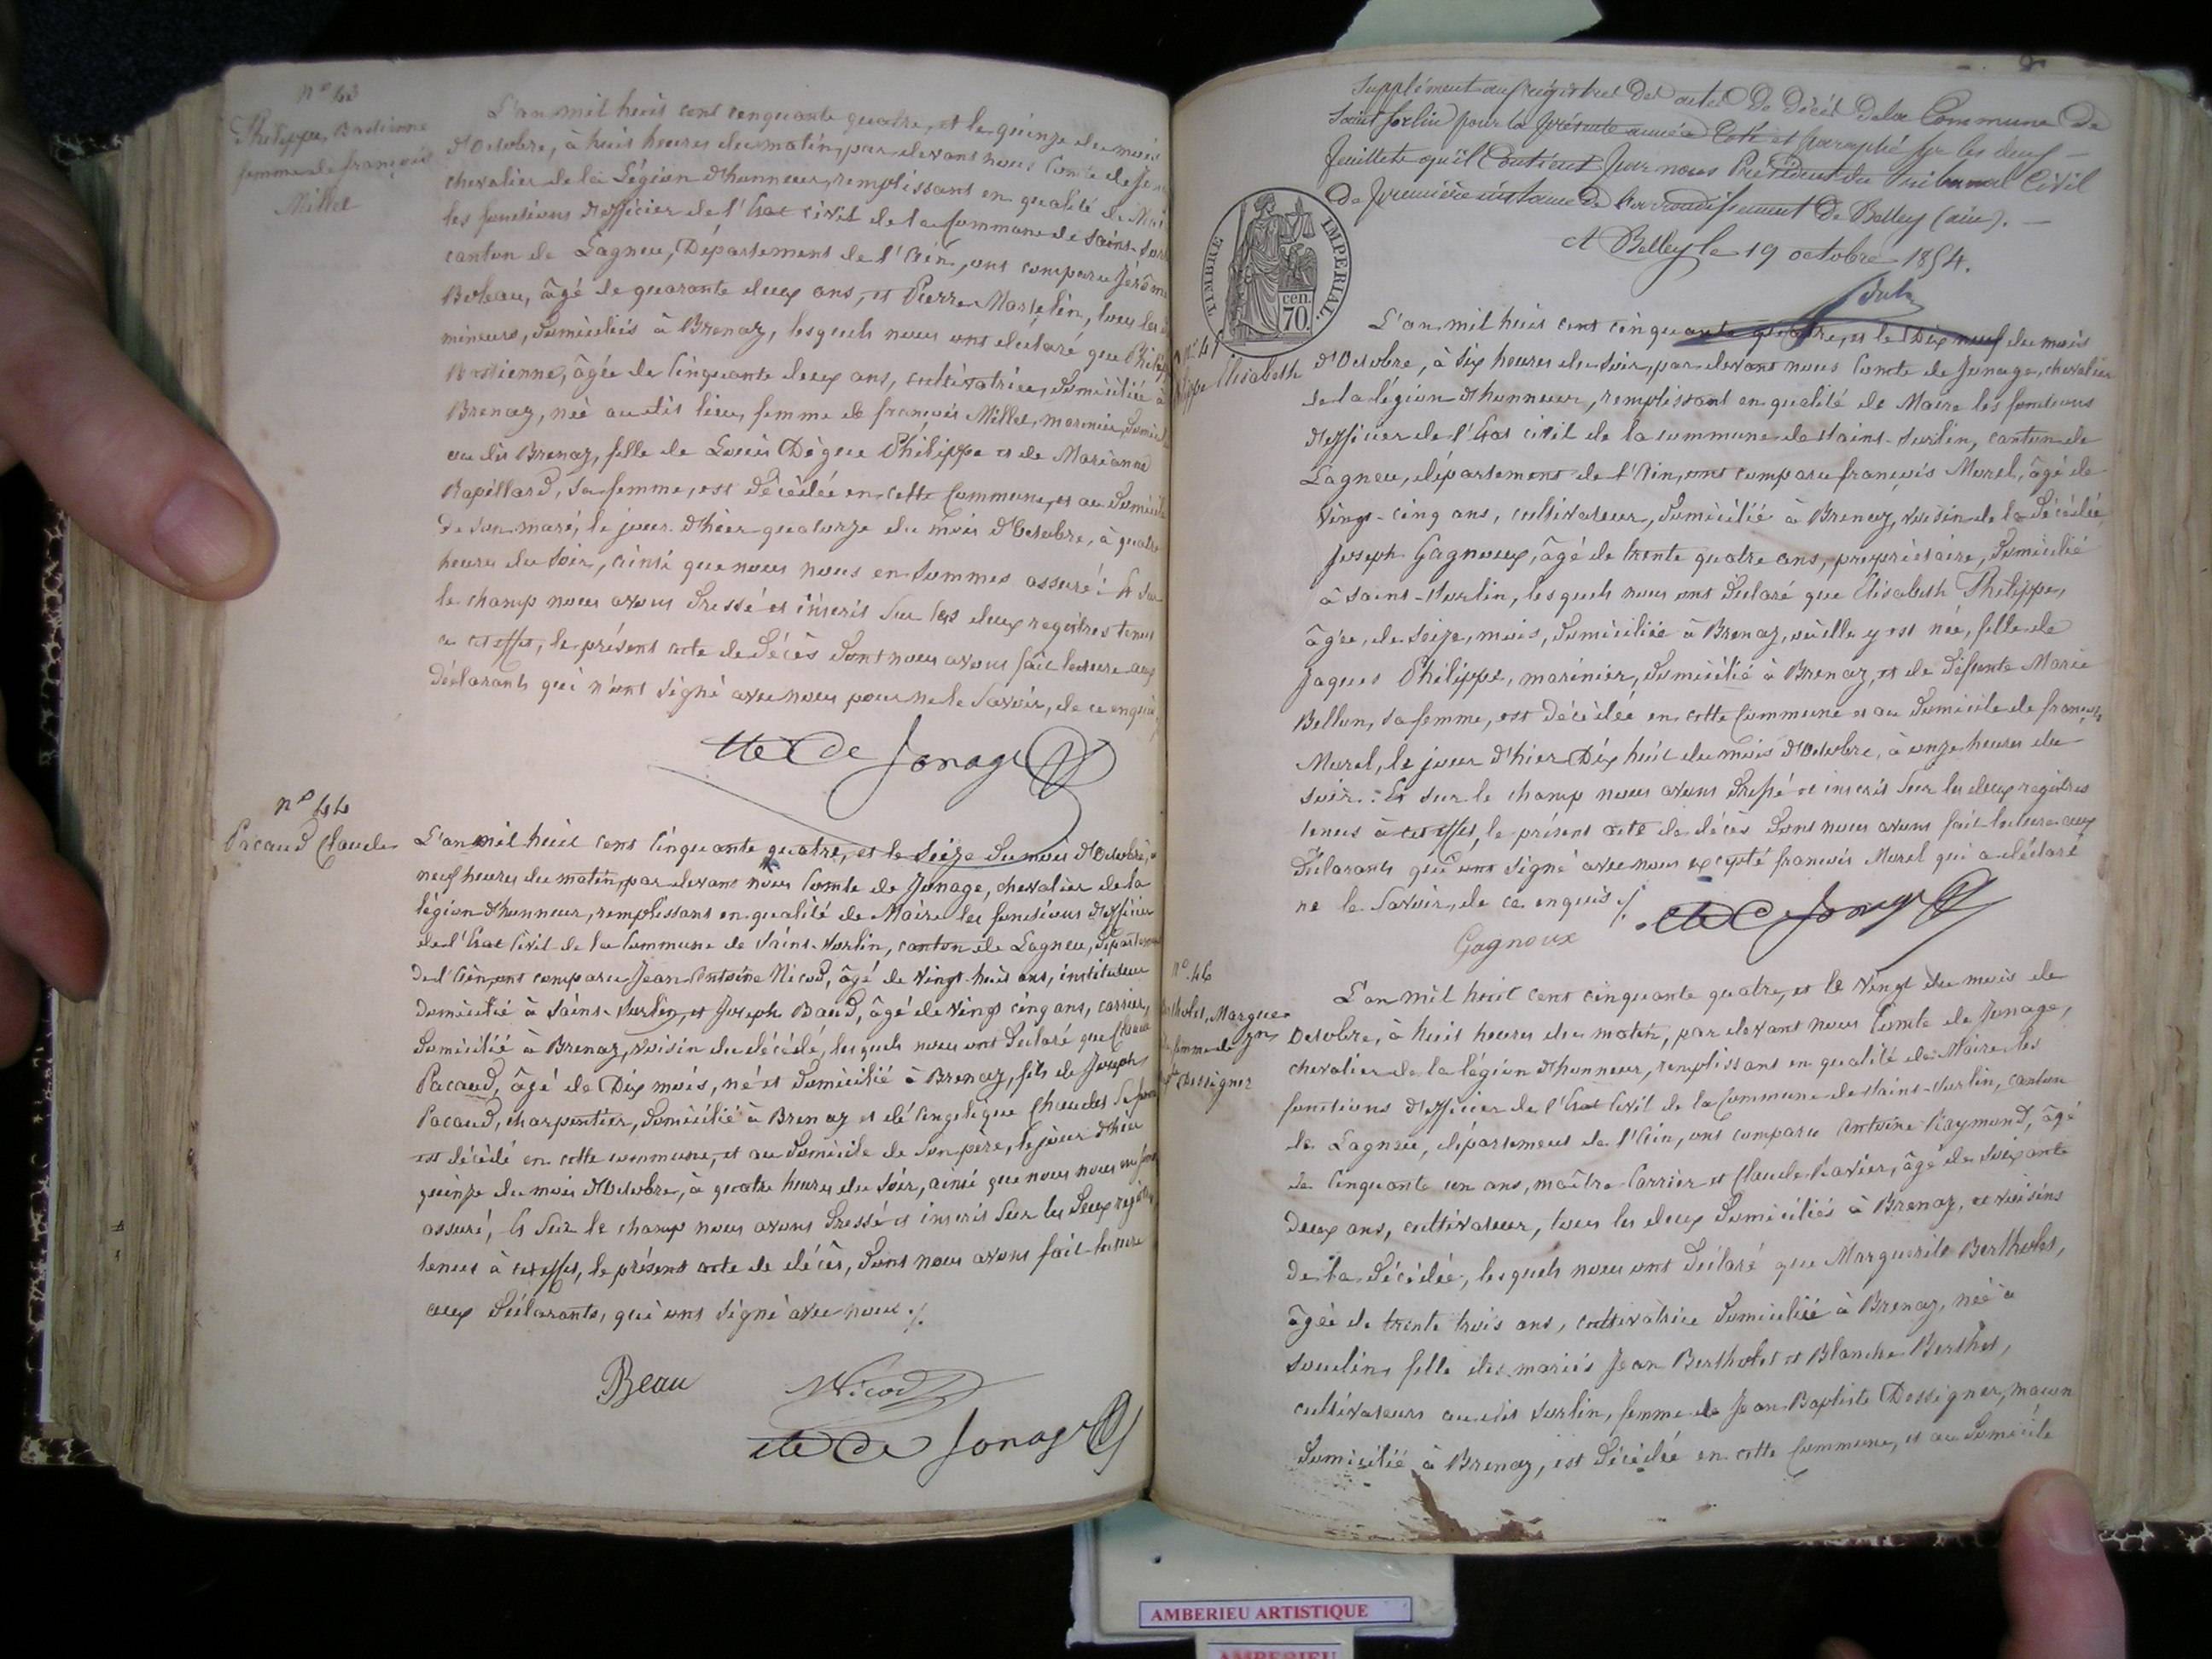 n° 43
Philippe, Bastienne
femme de françois
Millet
L'an mil huit cent cinquante quatre, et le quinze du mois
d'Octobre, à huit heures du matin, par devant nous Comte de
chevalier de la Légion d'honneur, remplissant en qualité de
les fonctions d'officier de l'Etat civil de la Commune de Saint
canton de Lagneu, Département de l'Ain, ont comparu Jérôme
Boleau, âgé de quarante deux ans, et Pierre Marcelin, tous les
mineurs, domiciliés à Brenaz, lesquels nous ont déclaré que
Bastienne, âgée de cinquante deux ans, cultivatrice, domiciliée à
Brenaz, née au dit lieu, femme de françois Millet, marinier,
au dit Brenaz, fille de Louis Dègue Philippe et de Mariane
Rapillard, sa femme, est décédée en cette Commune, et au domicile
de son mari, le jour d'hier quatorze du mois d'Octobre, à quatre
heures du soir, ainsi que nous nous en sommes assuré : Et sur
le champ nous avons dressé et inscrit sur les deux registres tenus
à cet effet, le présent acte de décès dont nous avons fait lecture aux
déclarants qui n'ont signé avec nous pour ne le savoir, de ce enquis
Cte De Jonage
n° 44
Pacaud Claude
L'an mil huit cent cinquante quatre, et le seize du mois d'Octobre, à
neuf heures du matin, par devant nous Comte de Jonage, chevalier de la
légion d'honneur, remplissant en qualité de Maire les fonctions d'officier
de l'Etat Civil de la Commune de Saint-Surlin, canton de Lagneu, Département
de l'Ain, ont comparu Jean Antoine Nicod, âgé de vingt-huit ans, instituteur
domicilié à Saint-Surlin, et Joseph Baud, âgé de vingt cinq ans, carrier,
domicilié à Brenaz, voisin du décédé, lesquels nous ont déclaré que Claude
Pacaud, âgé de Dix mois, né et domicilié à Brenaz, fils de Joseph
Pacaud, charpentier, domicilié à Brenaz et d'Angélique sa femme
est décédé en cette commune, et au domicile de son père, le jour d'hier
quinze du mois d'Octobre, à quatre heures du soir, ainsi que nous nous en
assuré, Et sur le champ nous avons dressé et inscrit sur les deux registres
tenus à cet effet, le présent acte de décès, dont nous avons fait lecture
aux déclarants, qui ont signé avec nous ./.
Beau Nicod
Cte De Jonage
Supplément au registre des actes de décès de la Commune de
Saint Sorlin pour la présente année Coté et paraphé sur les deux
feuillets qu'il Contient par nous Président du tribunal Civil
de première instance de l'arrondissement de Belley (ain).
A Belley le 19 octobre 1854.
TIMBRE IMPERIAL.
cen.
70.
n° 45
Elisabeth
L'an mil huit cent cinquante quatre, et le Dix neuf du mois
d'Octobre, à six heures du soir, par devant nous Comte de Jonage, chevalier
de la légion d'honneur, remplissant en qualité de Maire les fonctions
d'officier de l'Etat civil de la commune de Saint-Surlin, canton de
Lagneu, département de l'Ain, ont comparu françois Morel, âgé de
vingt-cinq ans, cultivateur, domicilié à Brenaz, voisin de la décédée
Joseph Gagnoux, âgé de trente quatre ans, propriétaire, domicilié
à Saint-Surlin, lesquels nous ont déclaré que Elisabeth Philippe,
âgée, de seize, mois, domiciliée à Brenaz, où elle y est née, fille de
Jaques Philippe, marinier, domicilié à Brenaz, et de défunte Marie
Bellon, sa femme, est décédée en cette Commune et au domicile de françois
Morel, le jour d'hier Dix huit du mois d'Octobre, à onze heures du
soir : Et sur le champ nous avons dressé et inscrit sur les deux registres
tenus à cet effet, le présent acte de décès dont nous avons fait lecture aux
déclarants qui ont signé avec nous excepté francois Morel qui a déclaré
ne le savoir, de ce enquis ./.
Cte De Jonage
Gagnoux
n° 46
Margue
femme de Jn
Bte Dessigner
L'an mil huit cent cinquante quatre, et le vingt du mois de
Octobre, à huit heures du matin, par devant nous Comte de Jonage,
chevalier de la légion d'honneur, remplissant en qualité de Maire les
fonctions d'officier de l'Etat Civil de la Commune de Saint-Surlin, canton
de Lagneu, département de l'Ain, ont comparu Antoine Raymond, âgé
de cinquante un ans, maître Carrier et Claude Ravier, âgé de soixante
deux ans, cultivateur, tous les deux domiciliés à Brenaz, et voisins
de la décédée, lesquels nous ont déclaré que Marguerite Bertholet,
âgée de trente trois ans, cultivatrice domiciliée à Brenaz, née à
Soudin, fille des mariés Jean Bertholet et Blanche Berthet,
cultivateurs au dit Surlin, femme de Jean Baptiste Dessigner, maçon
domicilié à Brenaz, est décédée en cette Commune, et au domicile
AMBERIEU ARTISTIQUE
AMBERIEU